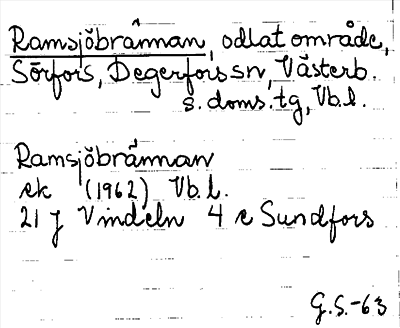 Ramsjöbrännan, odlat område,
Sörfors, Degerfors sn, Västerb.
s. doms. tg, Vb. l.
Ramsjöbrännan
ek (1962) Vb. l.
21 J Vindeln 4 e Sundfors
G.S.-63